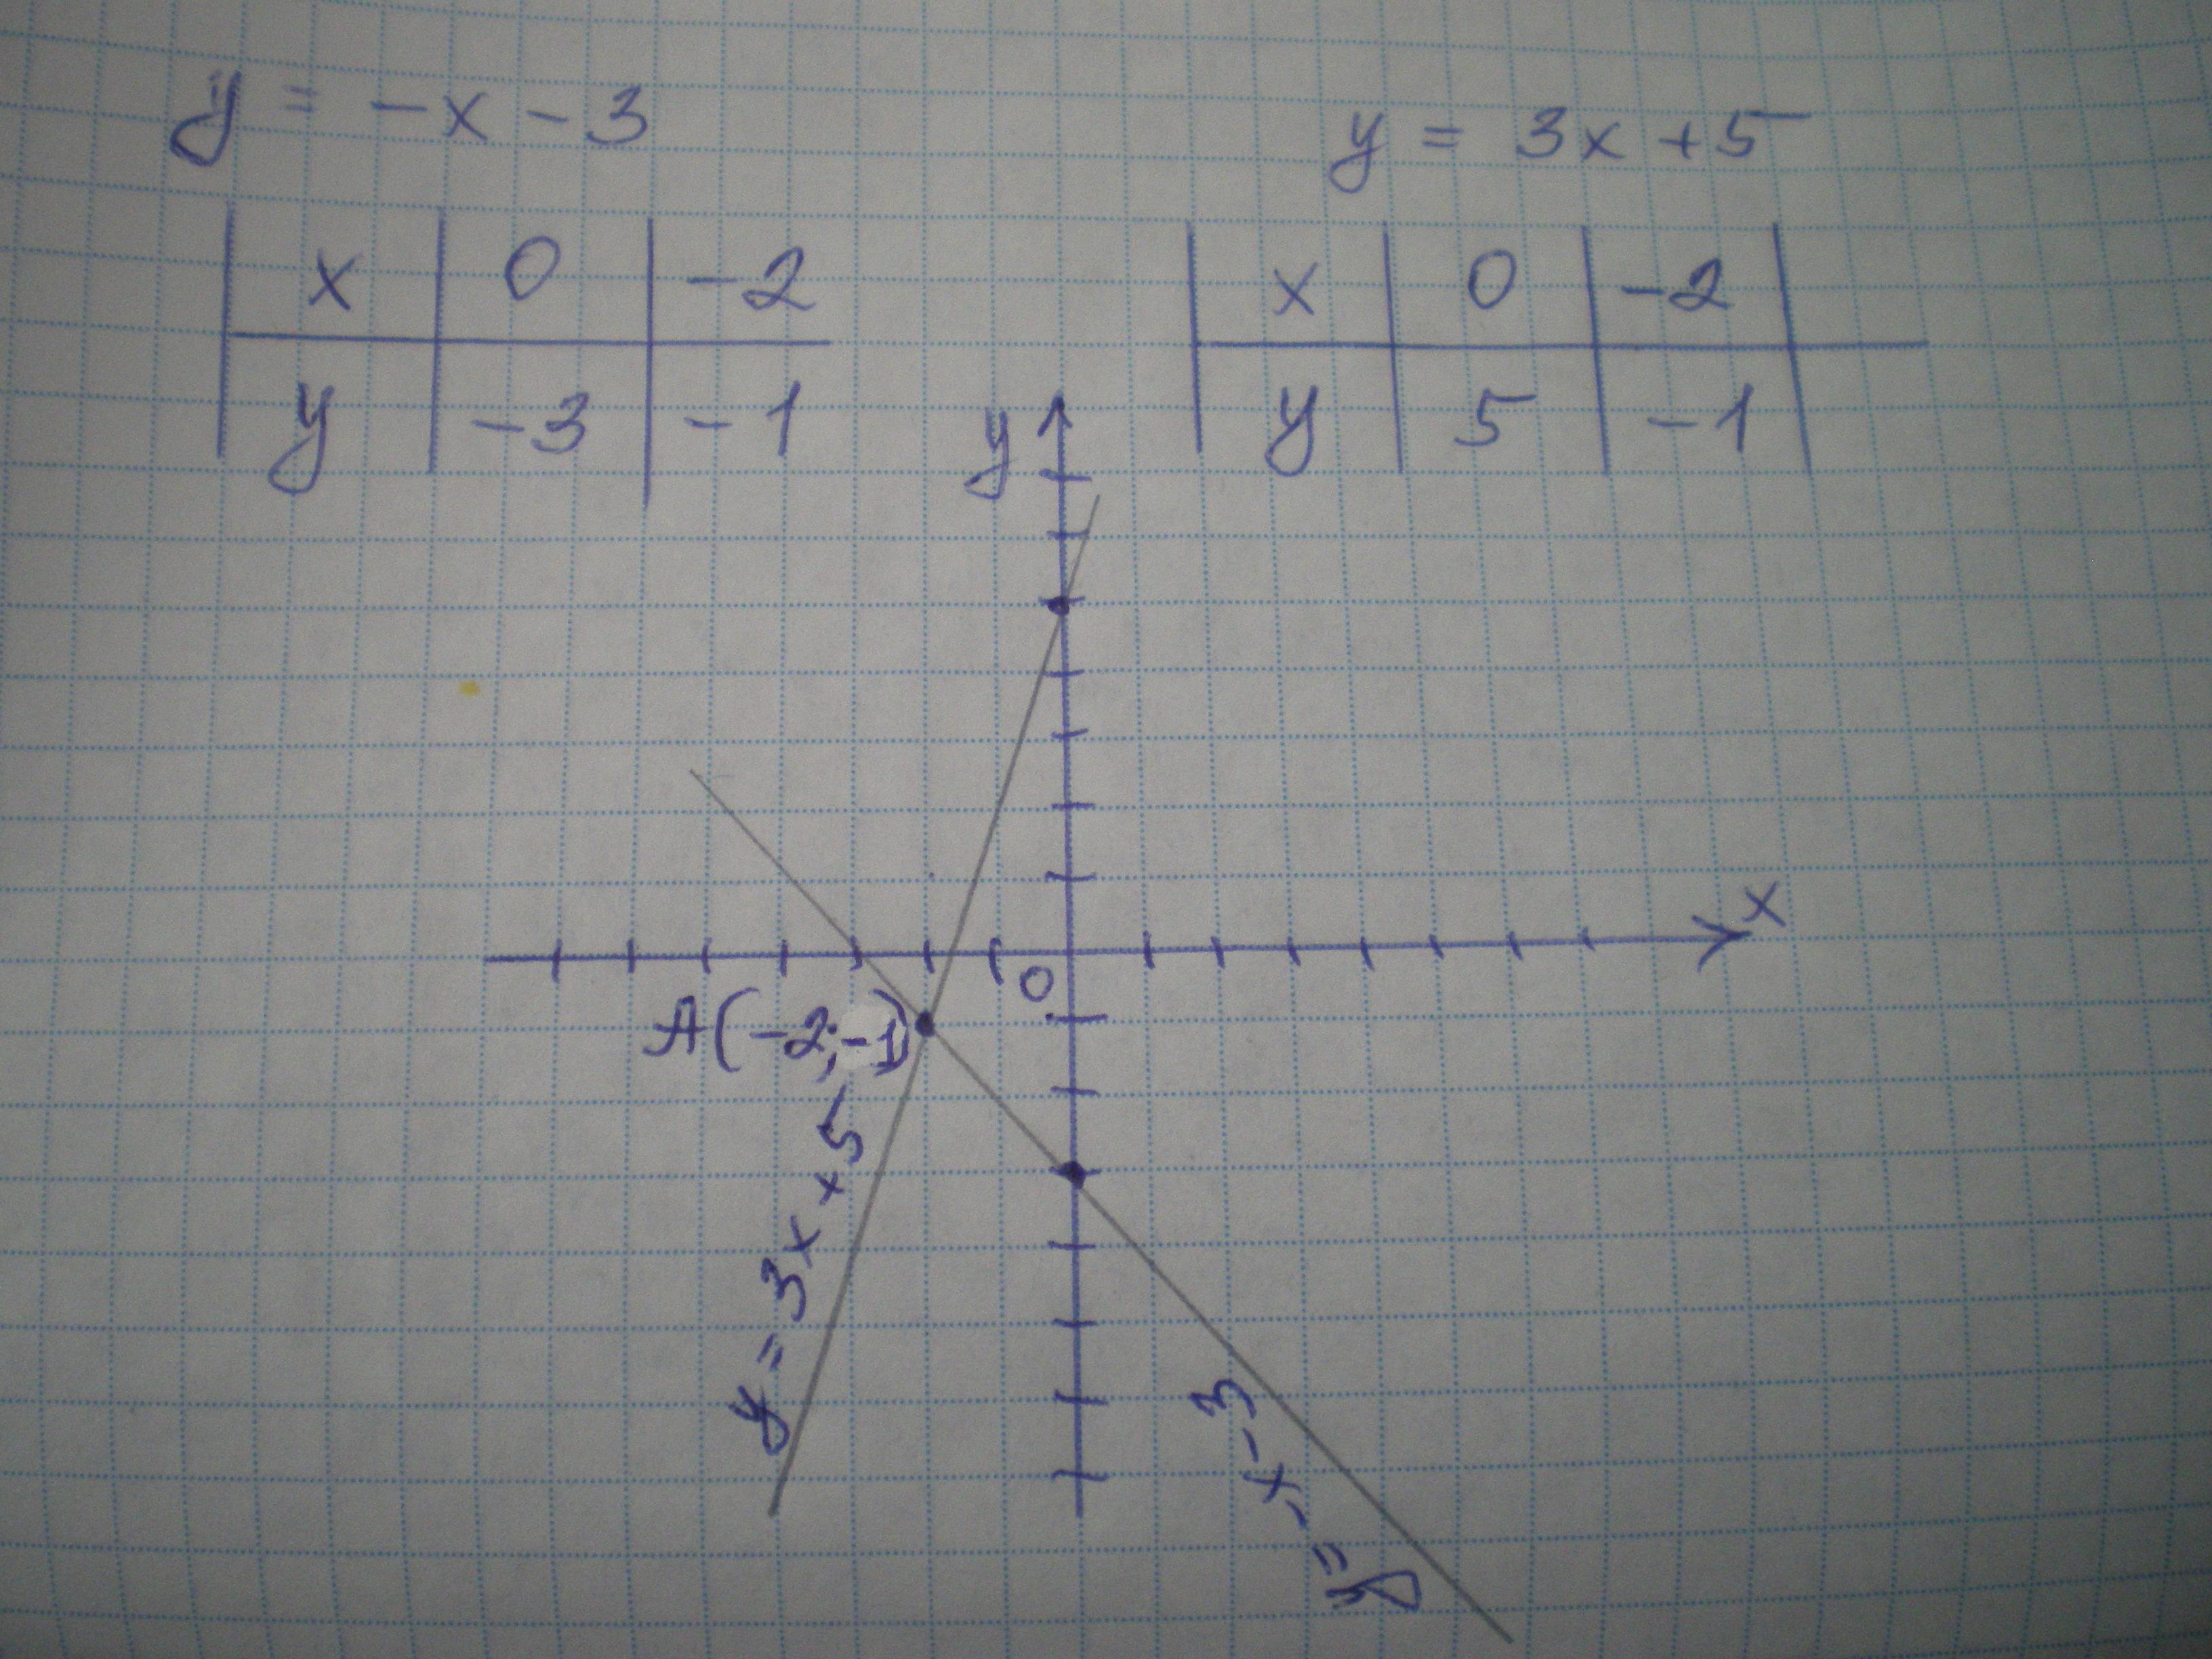 y = -x - 3
x 0 -2
y -3 -1
y = 3x + 5
x 0 -2
y 5 -1
y
x
0
A(-2;-1)
y = 3x + 5
y = -x - 3